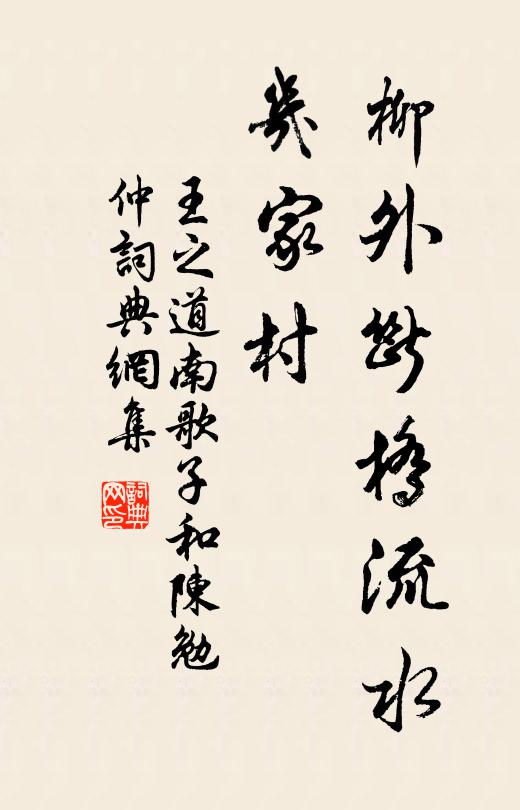 柳外斷橋流水
幾家村
王之道南歌子和陳勉
仲詞典網集
詞典
網印